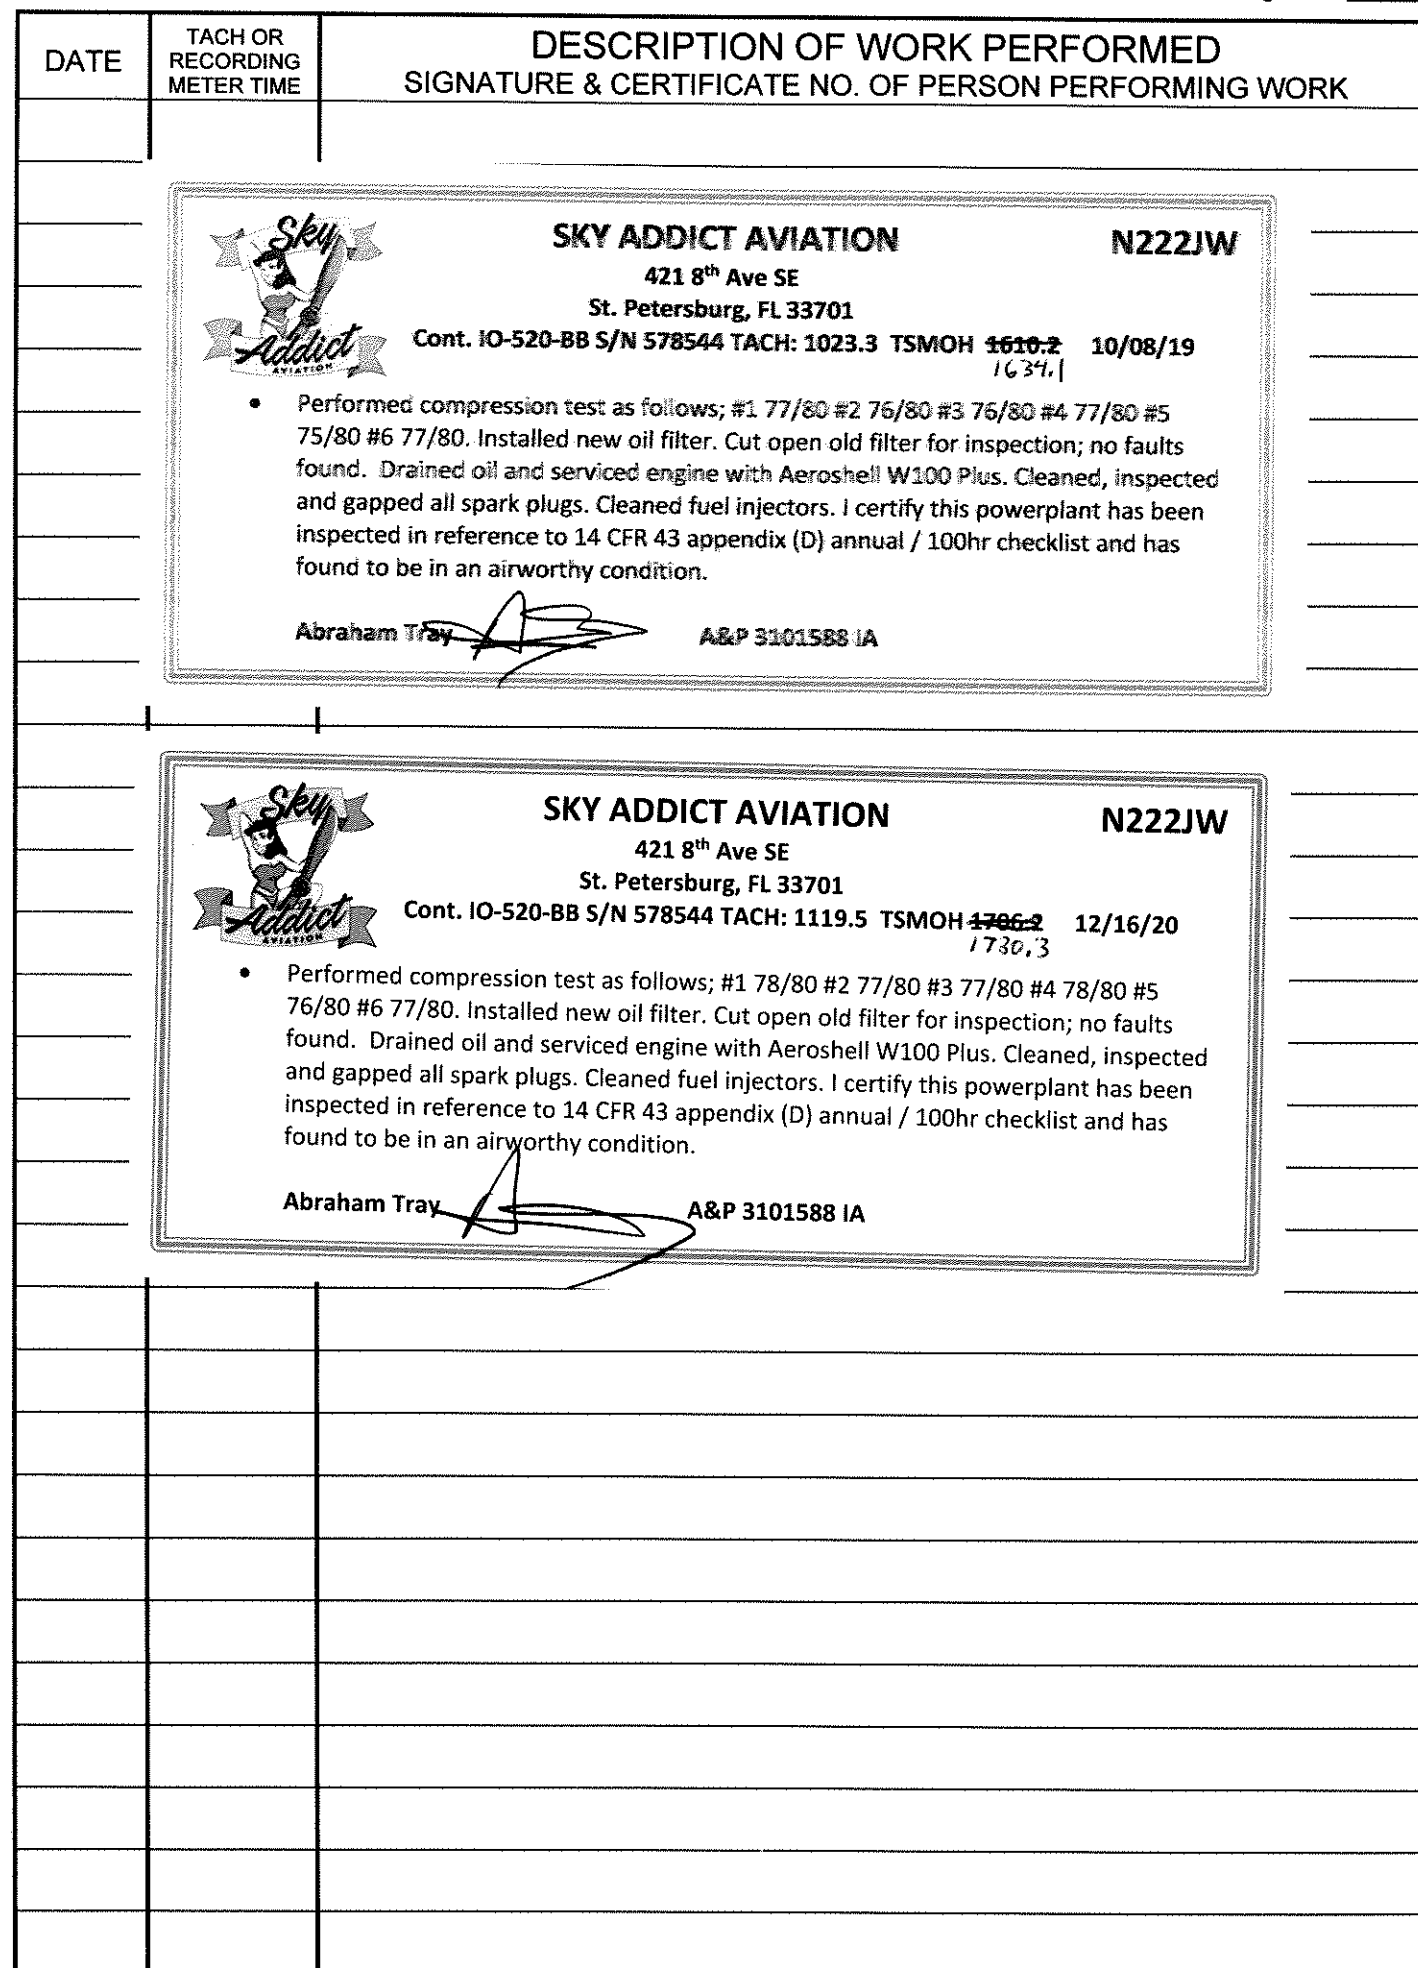 DATE
TACH OR
RECORDING
METER TIME
DESCRIPTION OF WORK PERFORMED
SIGNATURE & CERTIFICATE NO. OF PERSON PERFORMING WORK
Sky
Addict
AVIATION
SKY ADDICT AVIATION
N222JW
421 8th Ave SE
St. Petersburg, FL 33701
Cont. IO-520-BB S/N 578544 TACH: 1023.3 TSMOH 1610.2 10/08/19
1634.1
• Performed compression test as follows; #1 77/80 #2 76/80 #3 76/80 #4 77/80 #5
75/80 #6 77/80. Installed new oil filter. Cut open old filter for inspection; no faults
found. Drained oil and serviced engine with Aeroshell W100 Plus. Cleaned, inspected
and gapped all spark plugs. Cleaned fuel injectors. I certify this powerplant has been
inspected in reference to 14 CFR 43 appendix (D) annual / 100hr checklist and has
found to be in an airworthy condition.
Abraham Tray A&P 3101588 IA
Sky
Addict
AVIATION
SKY ADDICT AVIATION
N222JW
421 8th Ave SE
St. Petersburg, FL 33701
Cont. IO-520-BB S/N 578544 TACH: 1119.5 TSMOH 1706.2 12/16/20
1730.3
• Performed compression test as follows; #1 78/80 #2 77/80 #3 77/80 #4 78/80 #5
76/80 #6 77/80. Installed new oil filter. Cut open old filter for inspection; no faults
found. Drained oil and serviced engine with Aeroshell W100 Plus. Cleaned, inspected
and gapped all spark plugs. Cleaned fuel injectors. I certify this powerplant has been
inspected in reference to 14 CFR 43 appendix (D) annual / 100hr checklist and has
found to be in an airworthy condition.
Abraham Tray A&P 3101588 IA